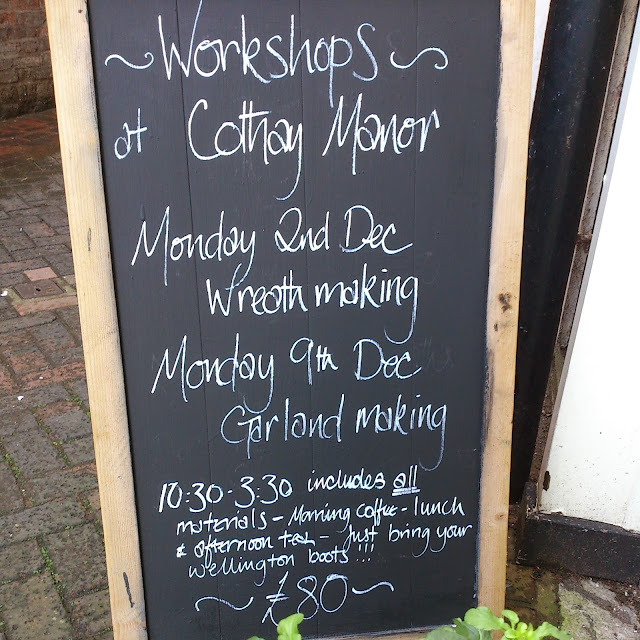 ~ Workshops ~
at Cothay Manor
Monday 2nd Dec
Wreath making
Monday 9th Dec
Garland making
10:30-3:30 includes all
materials - Morning coffee - lunch
& afternoon tea - Just bring your
wellington boots!!!
~ £80 ~